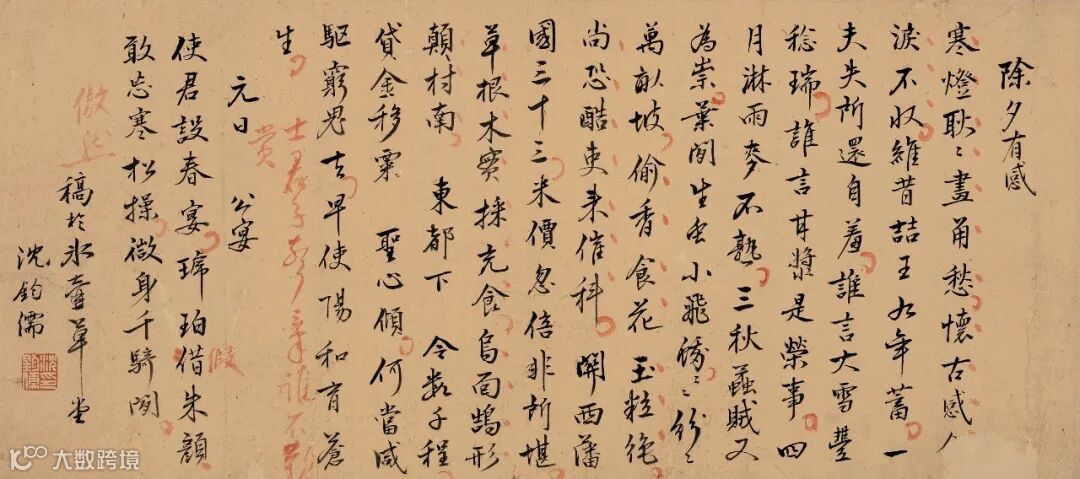 除夕有感
寒燈耿〻畫甬愁懷古感人
淚不收維昔喆王九年蓄一
夫失所還自羞誰言大雪豐
稔瑞誰言甘漿是榮事四
月淋雨麥不熟三秋蟊賊又
為祟葉間生虫小飛 〻紛〻
萬畝坡偷香食花玉粒
尚恐酷吏來催科開西藩
國三十三米價忽倍非所堪
草根木實採充食烏面鵠形
顛村南 東都下令數千程
貸金移粟 聖心傾何當咸
驅窮鬼去早使陽和育蒼
生
士君子
賞
元日 公宴
使君設春宴琥珀借朱顏
假
敢忘寒松操微身千騎間
稿於冰壺草堂
沈鈞儒
大数跨境